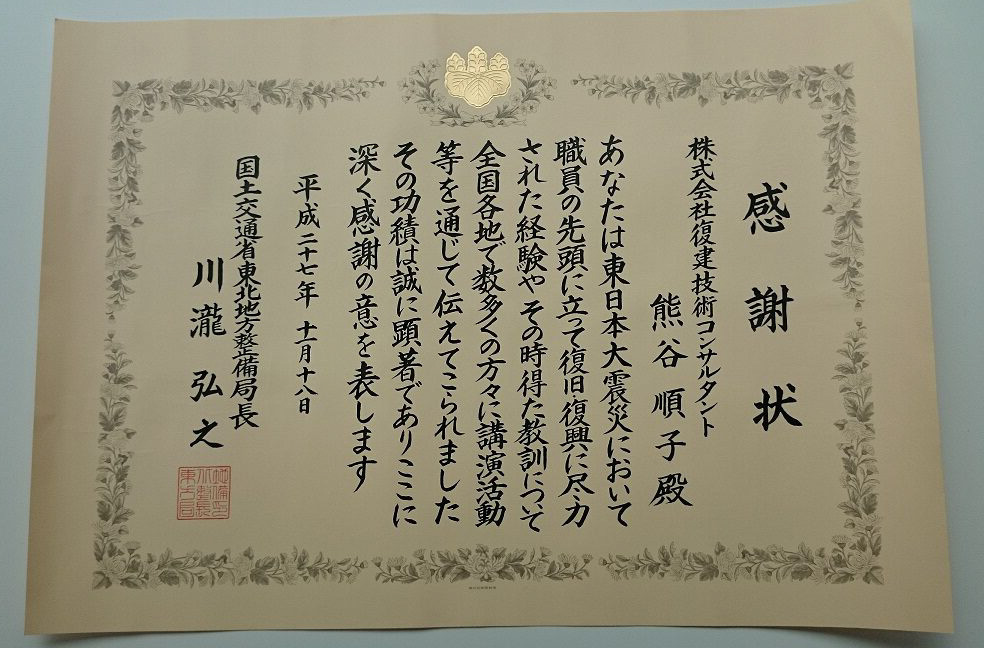 感謝状
株式会社復建技術コンサルタント
熊谷順子殿
あなたは東日本大震災において
職員の先頭に立って復旧復興に尽力
された経験やその時得た教訓について
全国各地で数多くの方々に講演活動
等を通じて伝えてこられました
その功績は誠に顕著でありここに
深く感謝の意を表します
平成二十七年十一月十八日
国土交通省東北地方整備局長
川瀧弘之